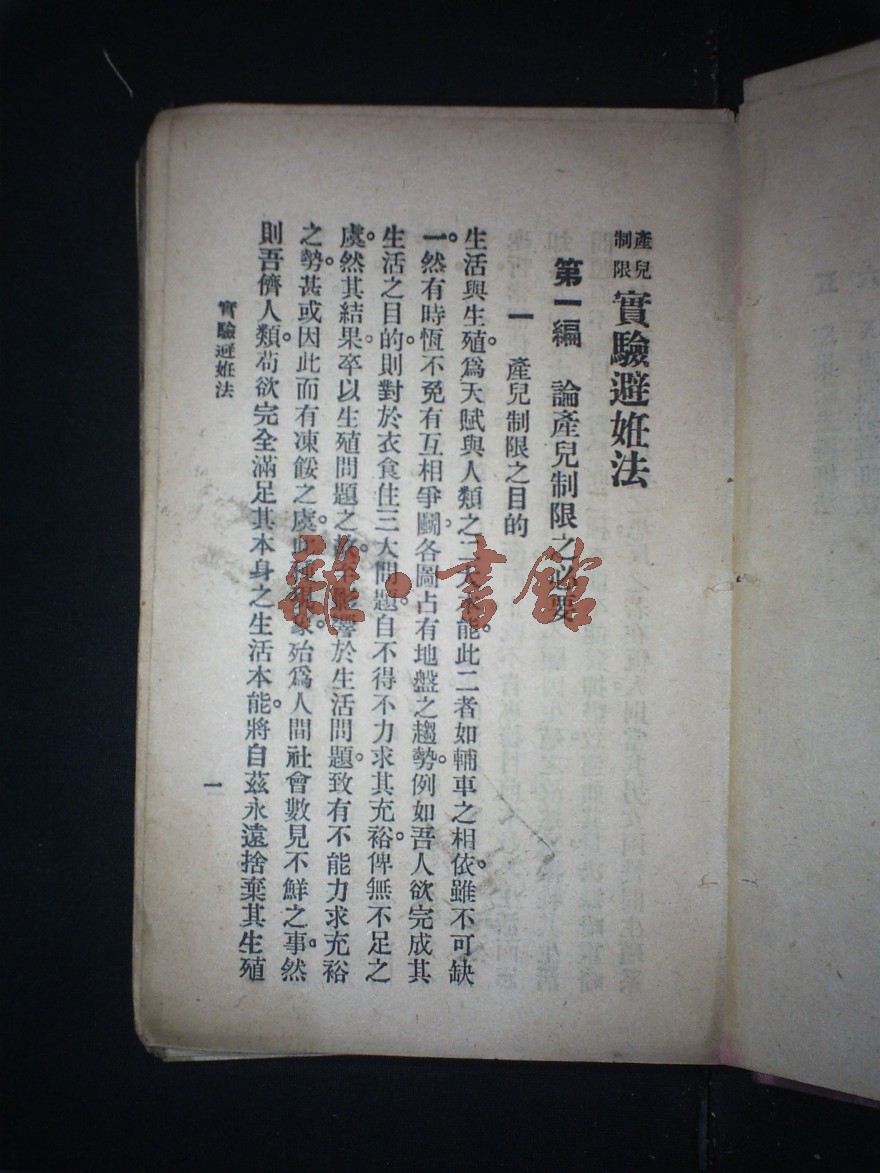 產兒制限 實驗避姙法
第一編 論產兒制限之必要
一 產兒制限之目的
生活與生殖。爲天賦與人類之二大本能。此二者如輔車之相依。雖不可缺
一。然有時恆不免有互相爭鬭。各圖占有地盤之趨勢。例如吾人欲完成其
生活之目的。則對於衣食住三大問題。自不得不力求其充裕。俾無不足之
虞。然其結果。卒以生殖問題之故。影響於生活問題。致有不能力求充裕
之勢。甚或因此而有凍餒之虞。此種現象。殆爲人間社會數見不鮮之事。然
則吾儕人類。苟欲完全滿足其本身之生活本能。將自茲永遠捨棄其生殖
實驗避姙法
一
雜·書館